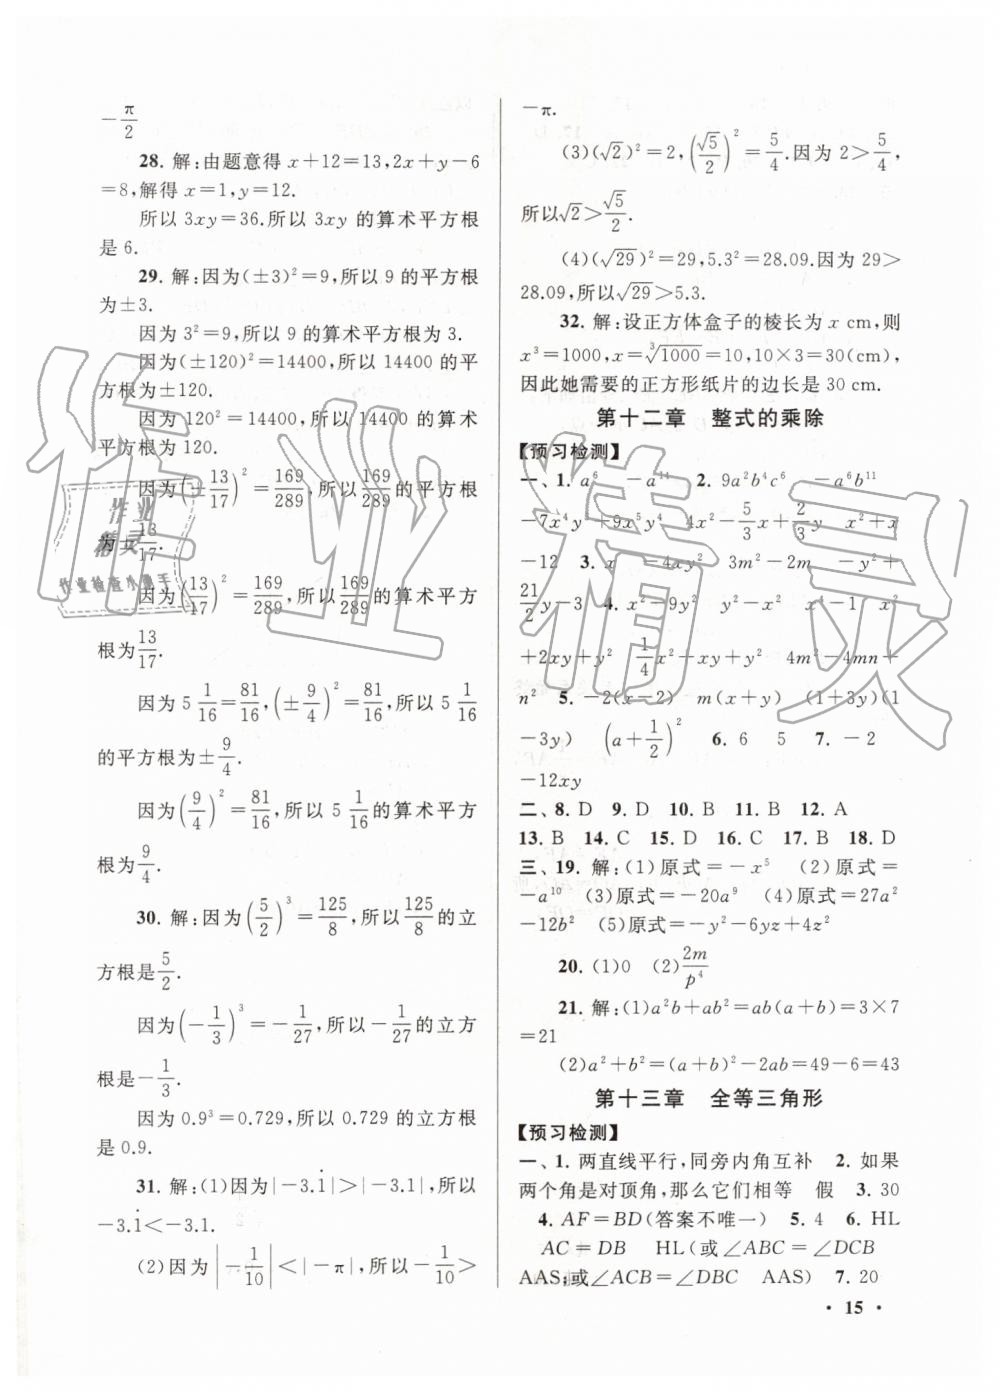 −π/2
28. 解:由题意得 x+12=13,2x+y−6
=8,解得 x=1,y=12.
所以 3xy=36.所以 3xy 的算术平方根
是 6.
29. 解:因为(±3)²=9,所以 9 的平方根
为±3.
因为 3²=9,所以 9 的算术平方根为 3.
因为(±120)²=14400,所以 14400 的平
方根为±120.
因为 120²=14400,所以 14400 的算术
平方根为 120.
因为(±13/17)²=169/289,所以169/289的平方根
为±13/17.
因为(13/17)²=169/289,所以169/289的算术平方
根为13/17.
因为 5 1/16=81/16,(±9/4)²=81/16,所以 5 1/16
的平方根为±9/4.
因为(9/4)²=81/16,所以 5 1/16的算术平方
根为9/4.
30. 解:因为(5/2)³=125/8,所以125/8的立
方根是5/2.
因为(−1/3)³=−1/27,所以−1/27的立方
根是−1/3.
因为 0.9³=0.729,所以 0.729 的立方根
是 0.9.
31. 解:(1)因为|−3.1̇|>|−3.1|,所以
−3.1̇<−3.1.
(2)因为|−1/10|<|−π|,所以−1/10>
−π.
(3)(√2)²=2,(√5/2)²=5/4.因为 2>5/4,
所以√2>√5/2.
(4)(√29)²=29,5.3²=28.09.因为 29>
28.09,所以√29>5.3.
32. 解:设正方体盒子的棱长为 x cm,则
x³=1000,x=∛1000=10,10×3=30(cm),
因此她需要的正方形纸片的边长是 30 cm.
第十二章 整式的乘除
【预习检测】
一、1. a⁶ −a¹⁴ 2. 9a²b⁴c⁶ −a⁶b¹¹
−7x⁴y +9x⁵y⁴ 4x²−5/3x+2/3y x²+x
−12 3. x −4x²y 3m²−2m −y²+
21/2y−3 4. x²−9y² y²−x² x⁴−1 x²
+2xy+y² 1/4x²−xy+y² 4m²−4mn+
n² 5. −2(x−2) m(x+y) (1+3y)(1
−3y) (a+1/2)² 6. 6 5 7. −2
−12xy
二、8. D 9. D 10. B 11. B 12. A
13. B 14. C 15. D 16. C 17. B 18. D
三、19. 解:(1)原式=−x⁵ (2)原式=
−a¹⁰ (3)原式=−20a⁹ (4)原式=27a²
−12b² (5)原式=−y²−6yz+4z²
20. (1)0 (2)2m/p⁴
21. 解:(1)a²b+ab²=ab(a+b)=3×7
=21
(2)a²+b²=(a+b)²−2ab=49−6=43
第十三章 全等三角形
【预习检测】
一、1. 两直线平行,同旁内角互补 2. 如果
两个角是对顶角,那么它们相等 假 3. 30
4. AF=BD(答案不唯一) 5. 4 6. HL
AC=DB HL(或∠ABC=∠DCB
AAS;或∠ACB=∠DBC AAS) 7. 20
• 15 •
作业精灵
作业
精灵
作业检查小助手